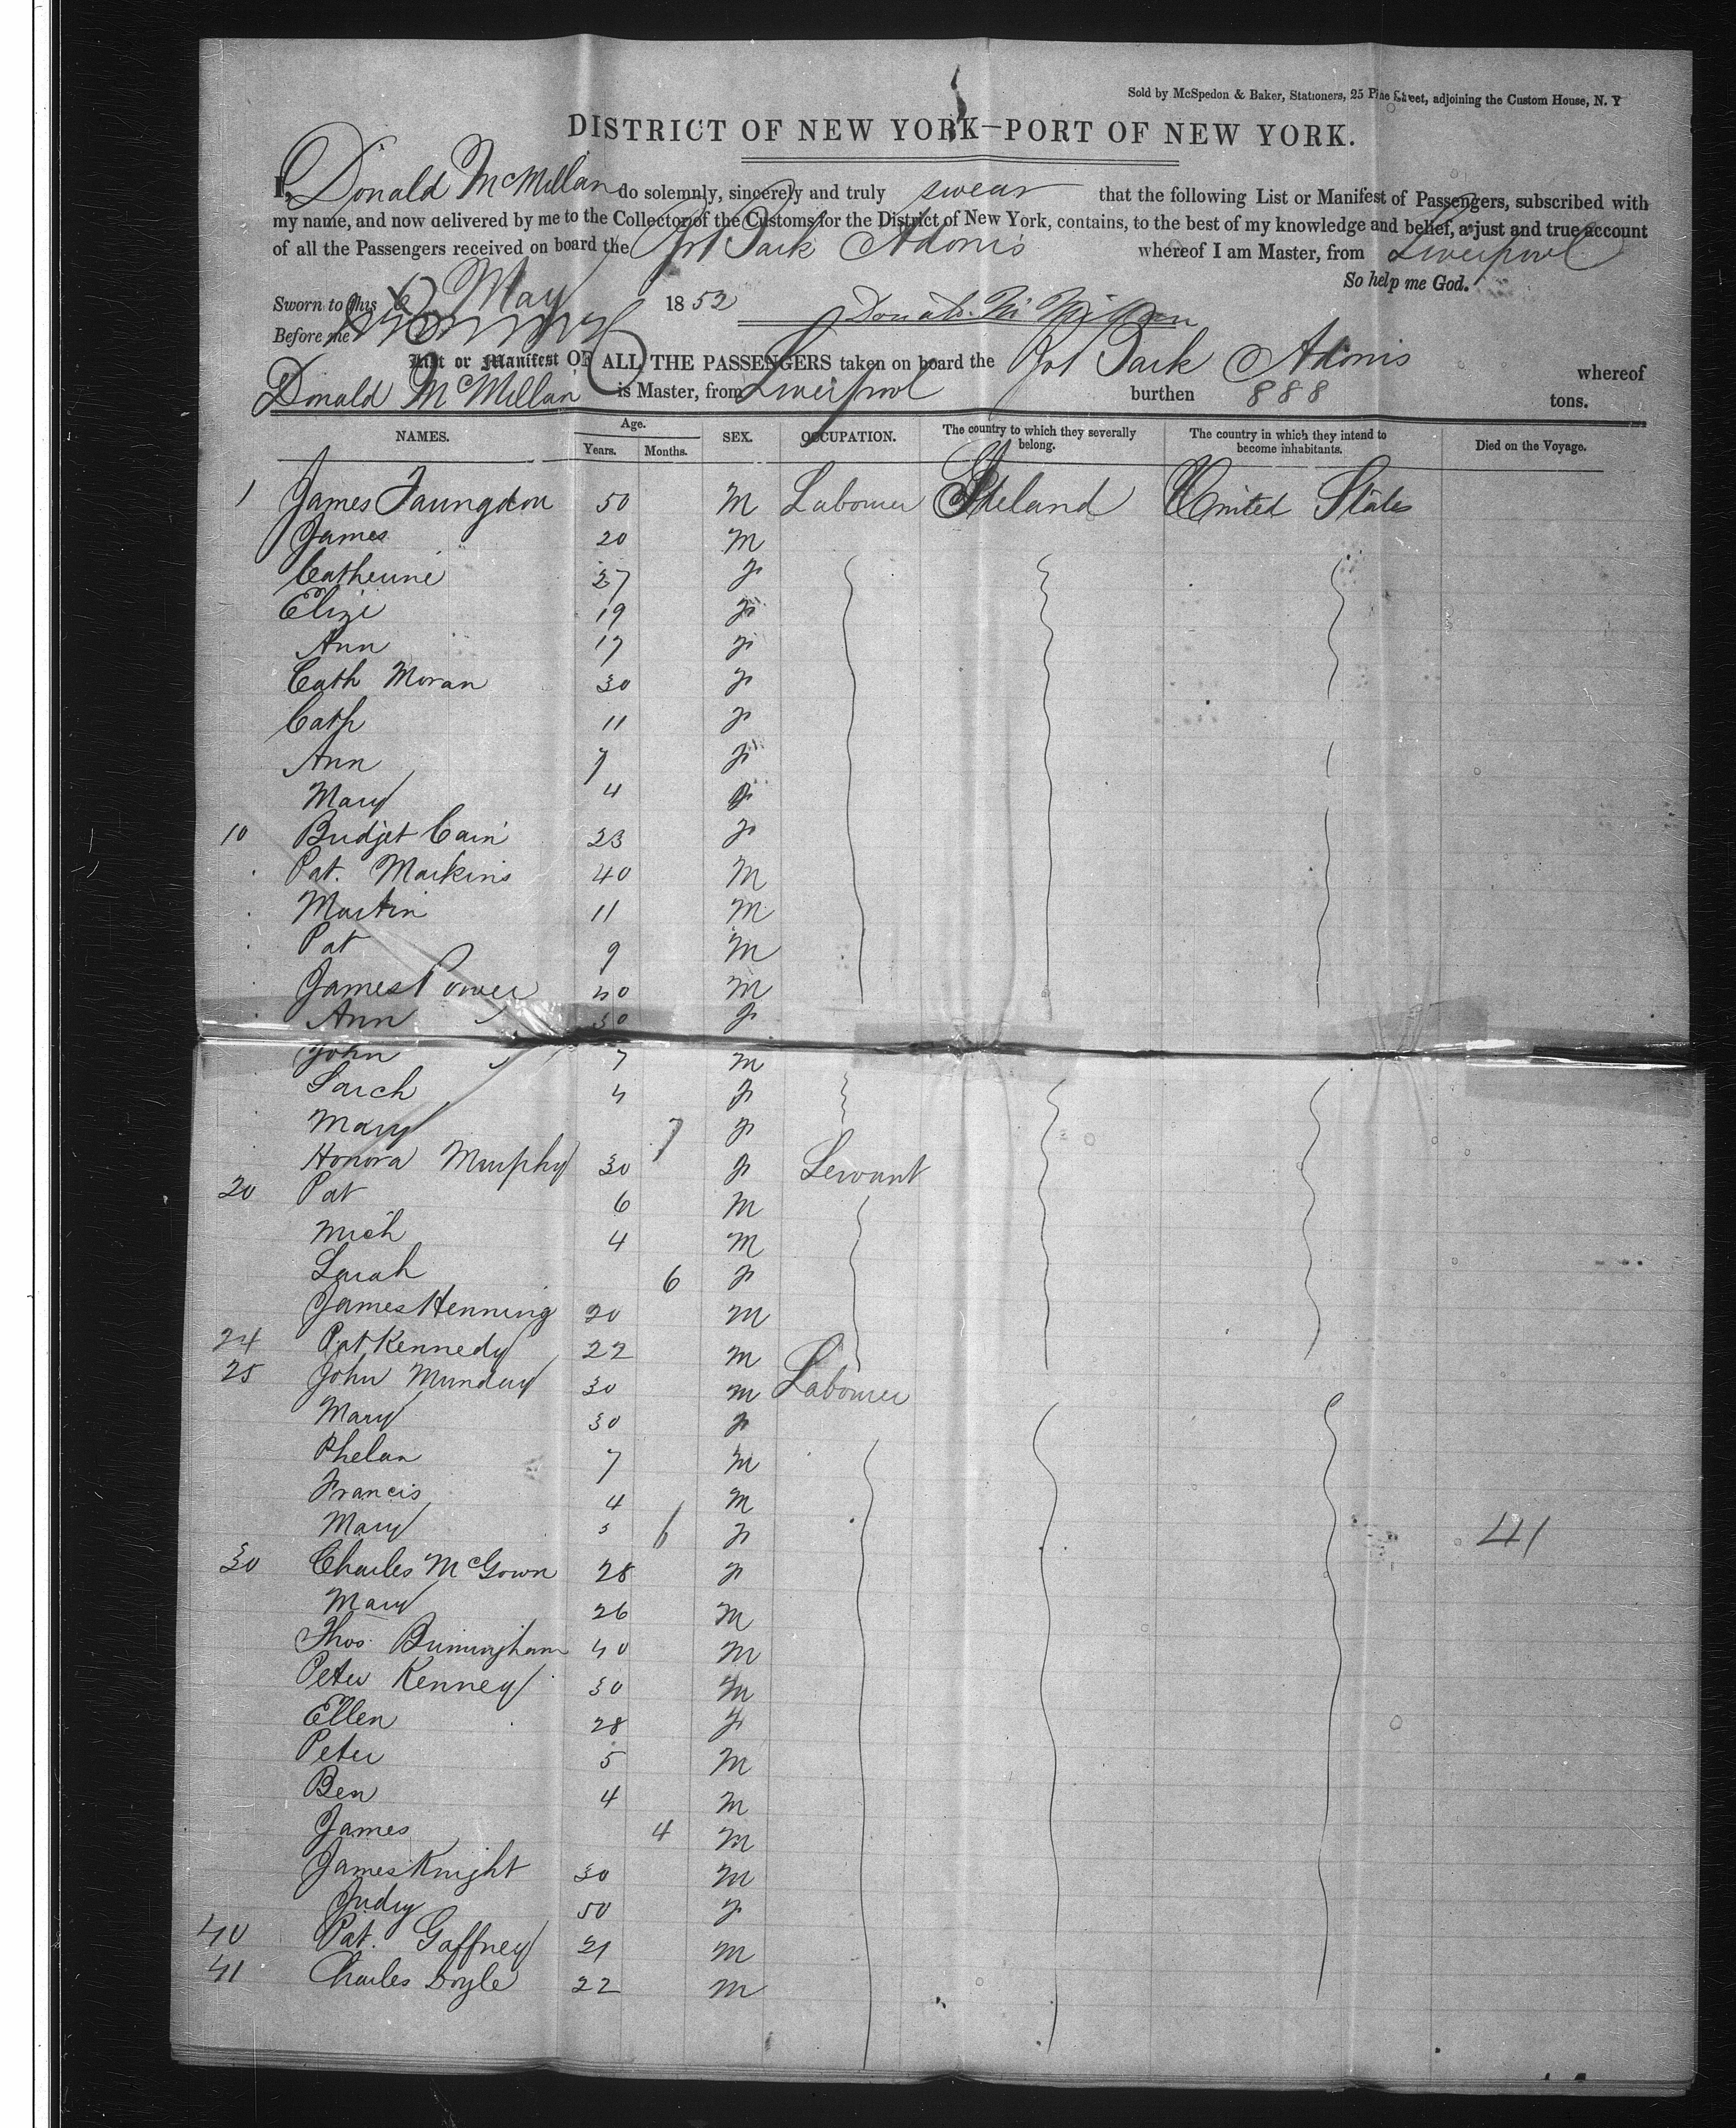 Sold by McSpedon & Baker, Stationers, 25 Pine Street, adjoining the Custom House, N. Y
DISTRICT OF NEW YORK—PORT OF NEW YORK.
I, Donald McMillan do solemnly, sincerely and truly swear that the following List or Manifest of Passengers, subscribed with
my name, and now delivered by me to the Collector of the Customs for the District of New York, contains, to the best of my knowledge and belief, a just and true account
of all the Passengers received on board the Bark Adonis whereof I am Master, from Liverpool
So help me God.
Sworn to this 6 May 1852 Donald McMillan
Before me
List or Manifest OF ALL THE PASSENGERS taken on board the Bark Adonis whereof
Donald McMillan is Master, from Liverpool burthen 888 tons.
NAMES. Age. Years. Months. SEX. OCCUPATION. The country to which they severally belong. The country in which they intend to become inhabitants. Died on the Voyage.
1 James 50 M Labourer Ireland United States
James 20 M
Catherine 27 F
Eliza 19 F
Ann 17 F
Cath Moran 30 F
Cath 11 F
Ann 7 F
Mary 4 F
10 Bridjet Cain 23 F
Pat. Markins 40 M
Martin 11 M
Pat 9 M
James Power 40 M
Ann 30 F
John 7 M
Sarch 4 F
Mary 7 F
Honora Murphy 30 F Servant
20 Pat 6 M
Mich 4 M
Sarah 6 F
James Henning 20 M
24 Pat Kennedy 22 M
25 John Munday 30 M Labourer
Mary 30 F
Phelan 7 M
Francis 4 M
Mary 6 F 41
30 Charles McGown 28 F
Mary 26 M
Thos. Birmingham 40 M
Peter Kenney 30 M
Ellen 28 F
Peter 5 M
Ben 4 M
James 4 M
James Knight 30 M
Judy 50 F
40 Pat. Gaffney 21 M
41 Charles Doyle 22 M